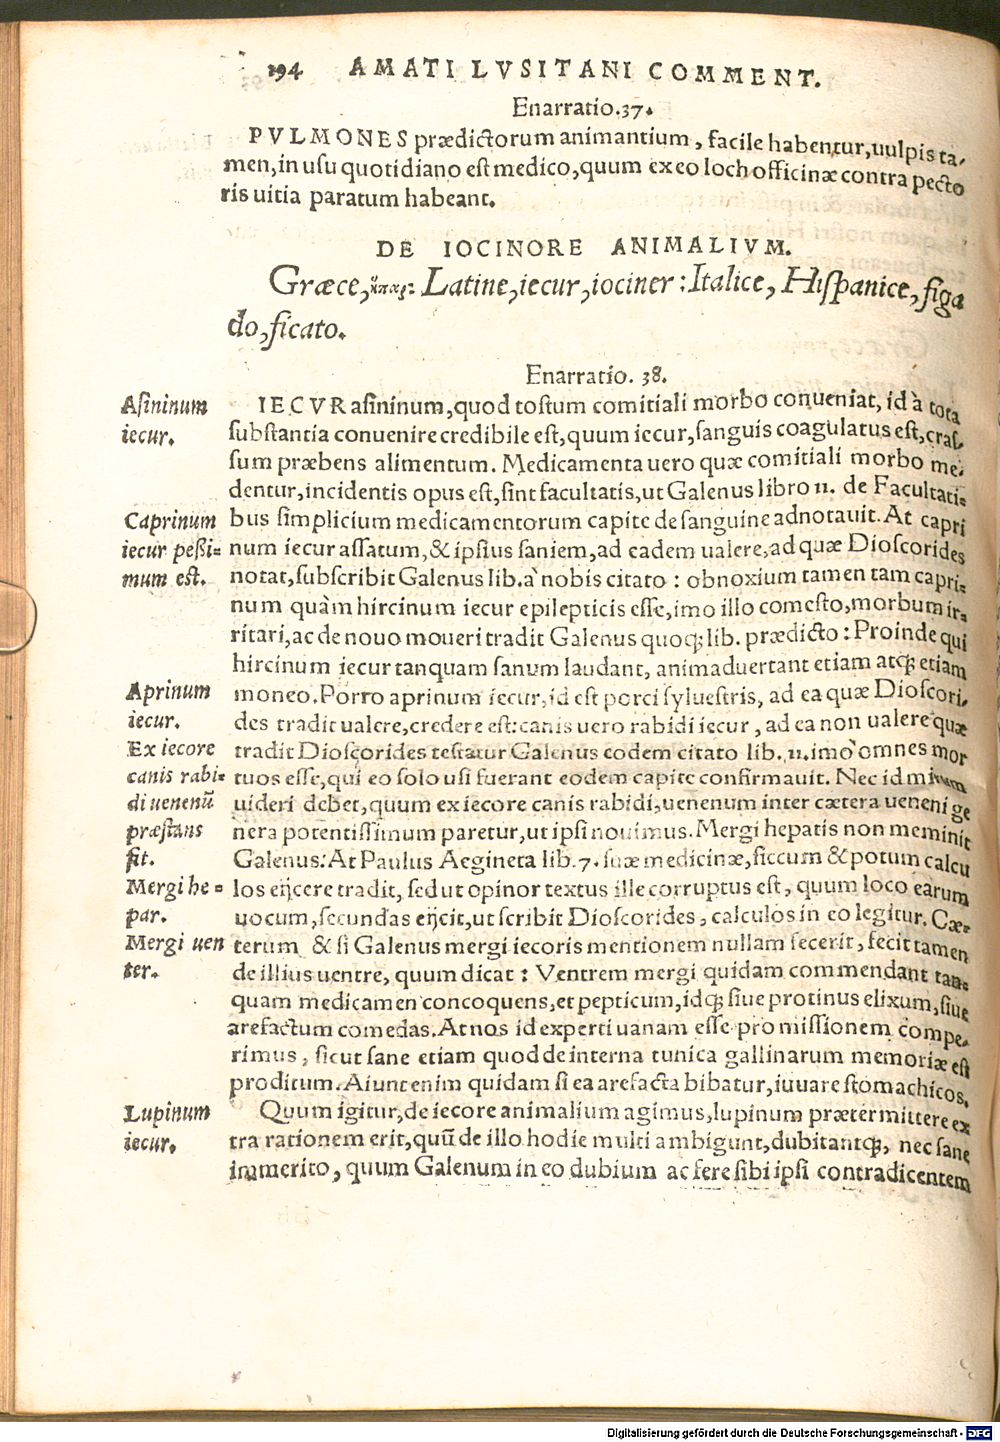 194 AMATI LVSITANI COMMENT.
Enarratio.37.
PVLMONES prædictorum animantium, facile habentur, uulpis ta-
men, in usu quotidiano est medico, quum ex eo loch officinæ contra pecto
ris uitia paratum habeant.
DE IOCINORE ANIMALIVM.
Græce, ἧπαρ: Latine, iecur, iociner: Italice, Hispanice, figa
do, ficato.
Enarratio. 38.
Asininum
iecur.
IECVR asininum, quod tostum comitiali morbo conueniat, id à tota
substantia conuenire credibile est, quum iecur, sanguis coagulatus est, cras-
sum præbens alimentum. Medicamenta uero quæ comitiali morbo me-
dentur, incidentis opus est, sint facultatis, ut Galenus libro 11. de Facultati-
Caprinum
iecur peßi-
mum est.
bus simplicium medicamentorum capite de sanguine adnotauit. At capri
num iecur assatum, & ipsius saniem, ad eadem ualere, ad quæ Dioscorides
notat, subscribit Galenus lib. à nobis citato: obnoxium tamen tam capri-
num quàm hircinum iecur epilepticis esse, imo illo comesto, morbum ir-
ritari, ac de nouo moueri tradit Galenus quoq; lib. prædicto: Proinde qui
hircinum iecur tanquam sanum laudant, animaduertant etiam atq; etiam
Aprinum
iecur.
moneo. Porro aprinum iecur, id est porci syluestris, ad ea quæ Dioscori-
des tradit ualere, credere est: canis uero rabidi iecur, ad ea non ualere quæ
Ex iecore
canis rabi-
di uenenū
præstans
fit.
tradit Dioscorides testatur Galenus eodem citato lib. 11. imò omnes mor
tuos esse, qui eo solo usi fuerant eodem capite confirmauit. Nec id mirum
uideri debet, quum ex iecore canis rabidi, uenenum inter cætera ueneni ge
nera potentissimum paretur, ut ipsi nouimus. Mergi hepatis non meminit
Galenus: At Paulus Aegineta lib. 7. suæ medicinæ, siccum & potum calcu
Mergi he-
par.
los eijcere tradit, sed ut opinor textus ille corruptus est, quum loco earum
uocum, secundas eijcit, ut scribit Dioscorides, calculos in eo legitur. Cæ-
Mergi uen
ter.
terum & si Galenus mergi iecoris mentionem nullam fecerit, fecit tamen
de illius uentre, quum dicat: Ventrem mergi quidam commendant tan-
quam medicamen concoquens, et pepticum, idq; siue protinus elixum, siue
arefactum comedas. At nos id experti uanam esse promissionem compe-
rimus, sicut sane etiam quod de interna tunica gallinarum memoriæ est
proditum. Aiunt enim quidam si ea arefacta bibatur, iuuare stomachicos.
Lupinum
iecur.
Quum igitur, de iecore animalium agimus, lupinum prætermittere ex
tra rationem erit, quū de illo hodie multi ambigunt, dubitantq;, nec sane
immerito, quum Galenum in eo dubium ac fere sibi ipsi contradicentem
Digitalisierung gefördert durch die Deutsche Forschungsgemeinschaft - DFG